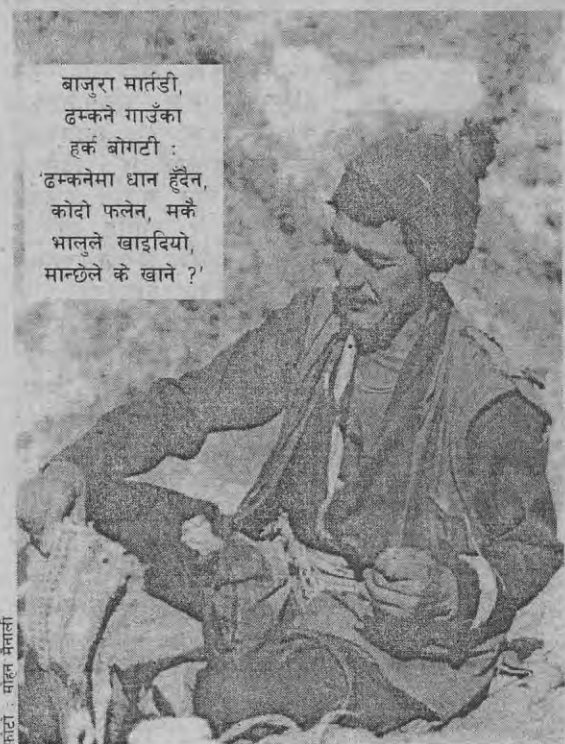 बाजुरा मार्तडी,
ढम्कने गाउँका
हर्क बोगटी :
'ढम्कनेमा धान हुँदैन,
कोदो फलेन, मकै
भालुले खाइदियो,
मान्छेले के खाने ?'
फोटो : मोहन मैनाली